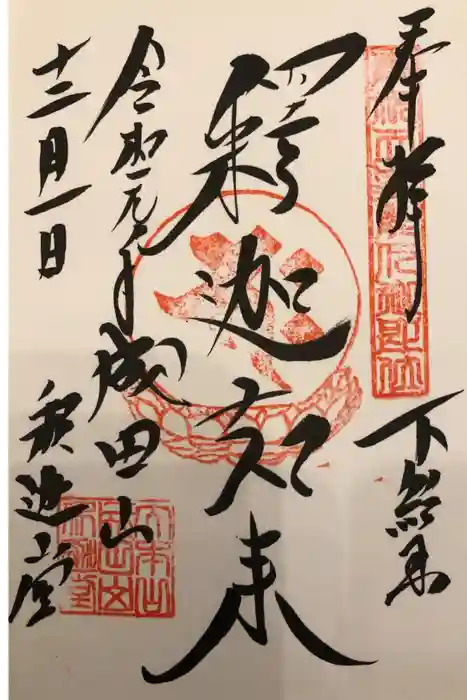 奉拝
下総国
釈迦如来
令和元年
成田山
釈迦堂
十二月一日